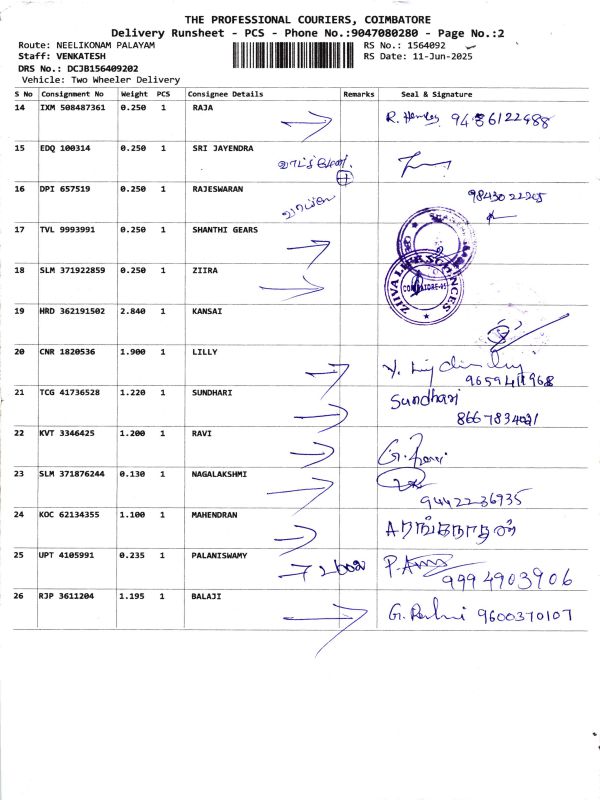 THE PROFESSIONAL COURIERS, COIMBATORE
Delivery Runsheet - PCS - Phone No.:9047080280 - Page No.:2
Route: NEELIKONAM PALAYAM
RS No.: 1564092
Staff: VENKATESH
RS Date: 11-Jun-2025
DRS No.: DCJB156409202
Vehicle: Two Wheeler Delivery
S No Consignment No Weight PCS Consignee Details Remarks Seal & Signature
14 IXM 508487361 0.250 1 RAJA 9486122488
15 EDQ 100314 0.250 1 SRI JAYENDRA
16 DPI 657519 0.250 1 RAJESWARAN
17 TVL 9993991 0.250 1 SHANTHI GEARS
18 SLM 371922859 0.250 1 ZIIRA
ZIIVA LIFE SCIENCES
19 HRD 362191502 2.840 1 KANSAI
20 CNR 1820536 1.900 1 LILLY
21 TCG 41736528 1.220 1 SUNDHARI Sundhari
22 KVT 3346425 1.200 1 RAVI
23 SLM 371876244 0.130 1 NAGALAKSHMI
9442236935
24 KOC 62134355 1.100 1 MAHENDRAN
25 UPT 4105991 0.235 1 PALANISWAMY
9994903906
26 RJP 3611204 1.195 1 BALAJI 9600370107